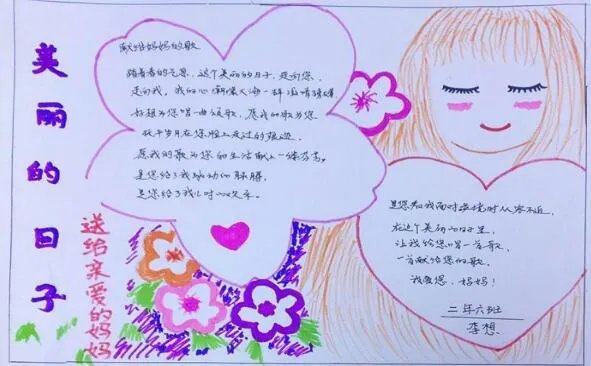 美丽的日子
送给亲爱的妈妈
献给妈妈的歌
踏着春的气息，这个美丽的日子，走向您，
走向我，我的心潮像大海一样
好想为您唱一曲颂歌，愿我的歌为您
抚平岁月在您脸上走过的痕迹，
愿我的歌为您的生活献上一缕芬芳。
是您给了我
是您给了我儿时的欢乐。
是您教我面对困境时从容不迫，
在这个美丽的日子里，
让我给您唱一首歌，
一首献给您的歌，
我爱您，妈妈！
二年六班
李想